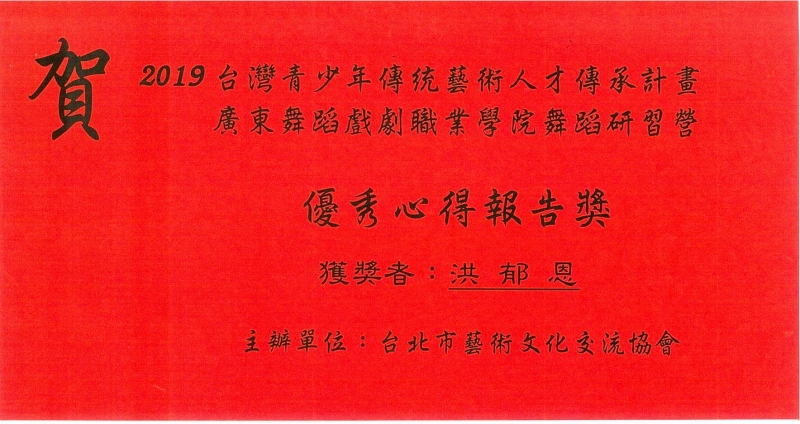 賀
2019 台灣青少年傳統藝術人才傳承計畫
廣東舞蹈戲劇職業學院舞蹈研習營
優秀心得報告獎
獲獎者：洪郁恩
主辦單位：台北市藝術文化交流協會